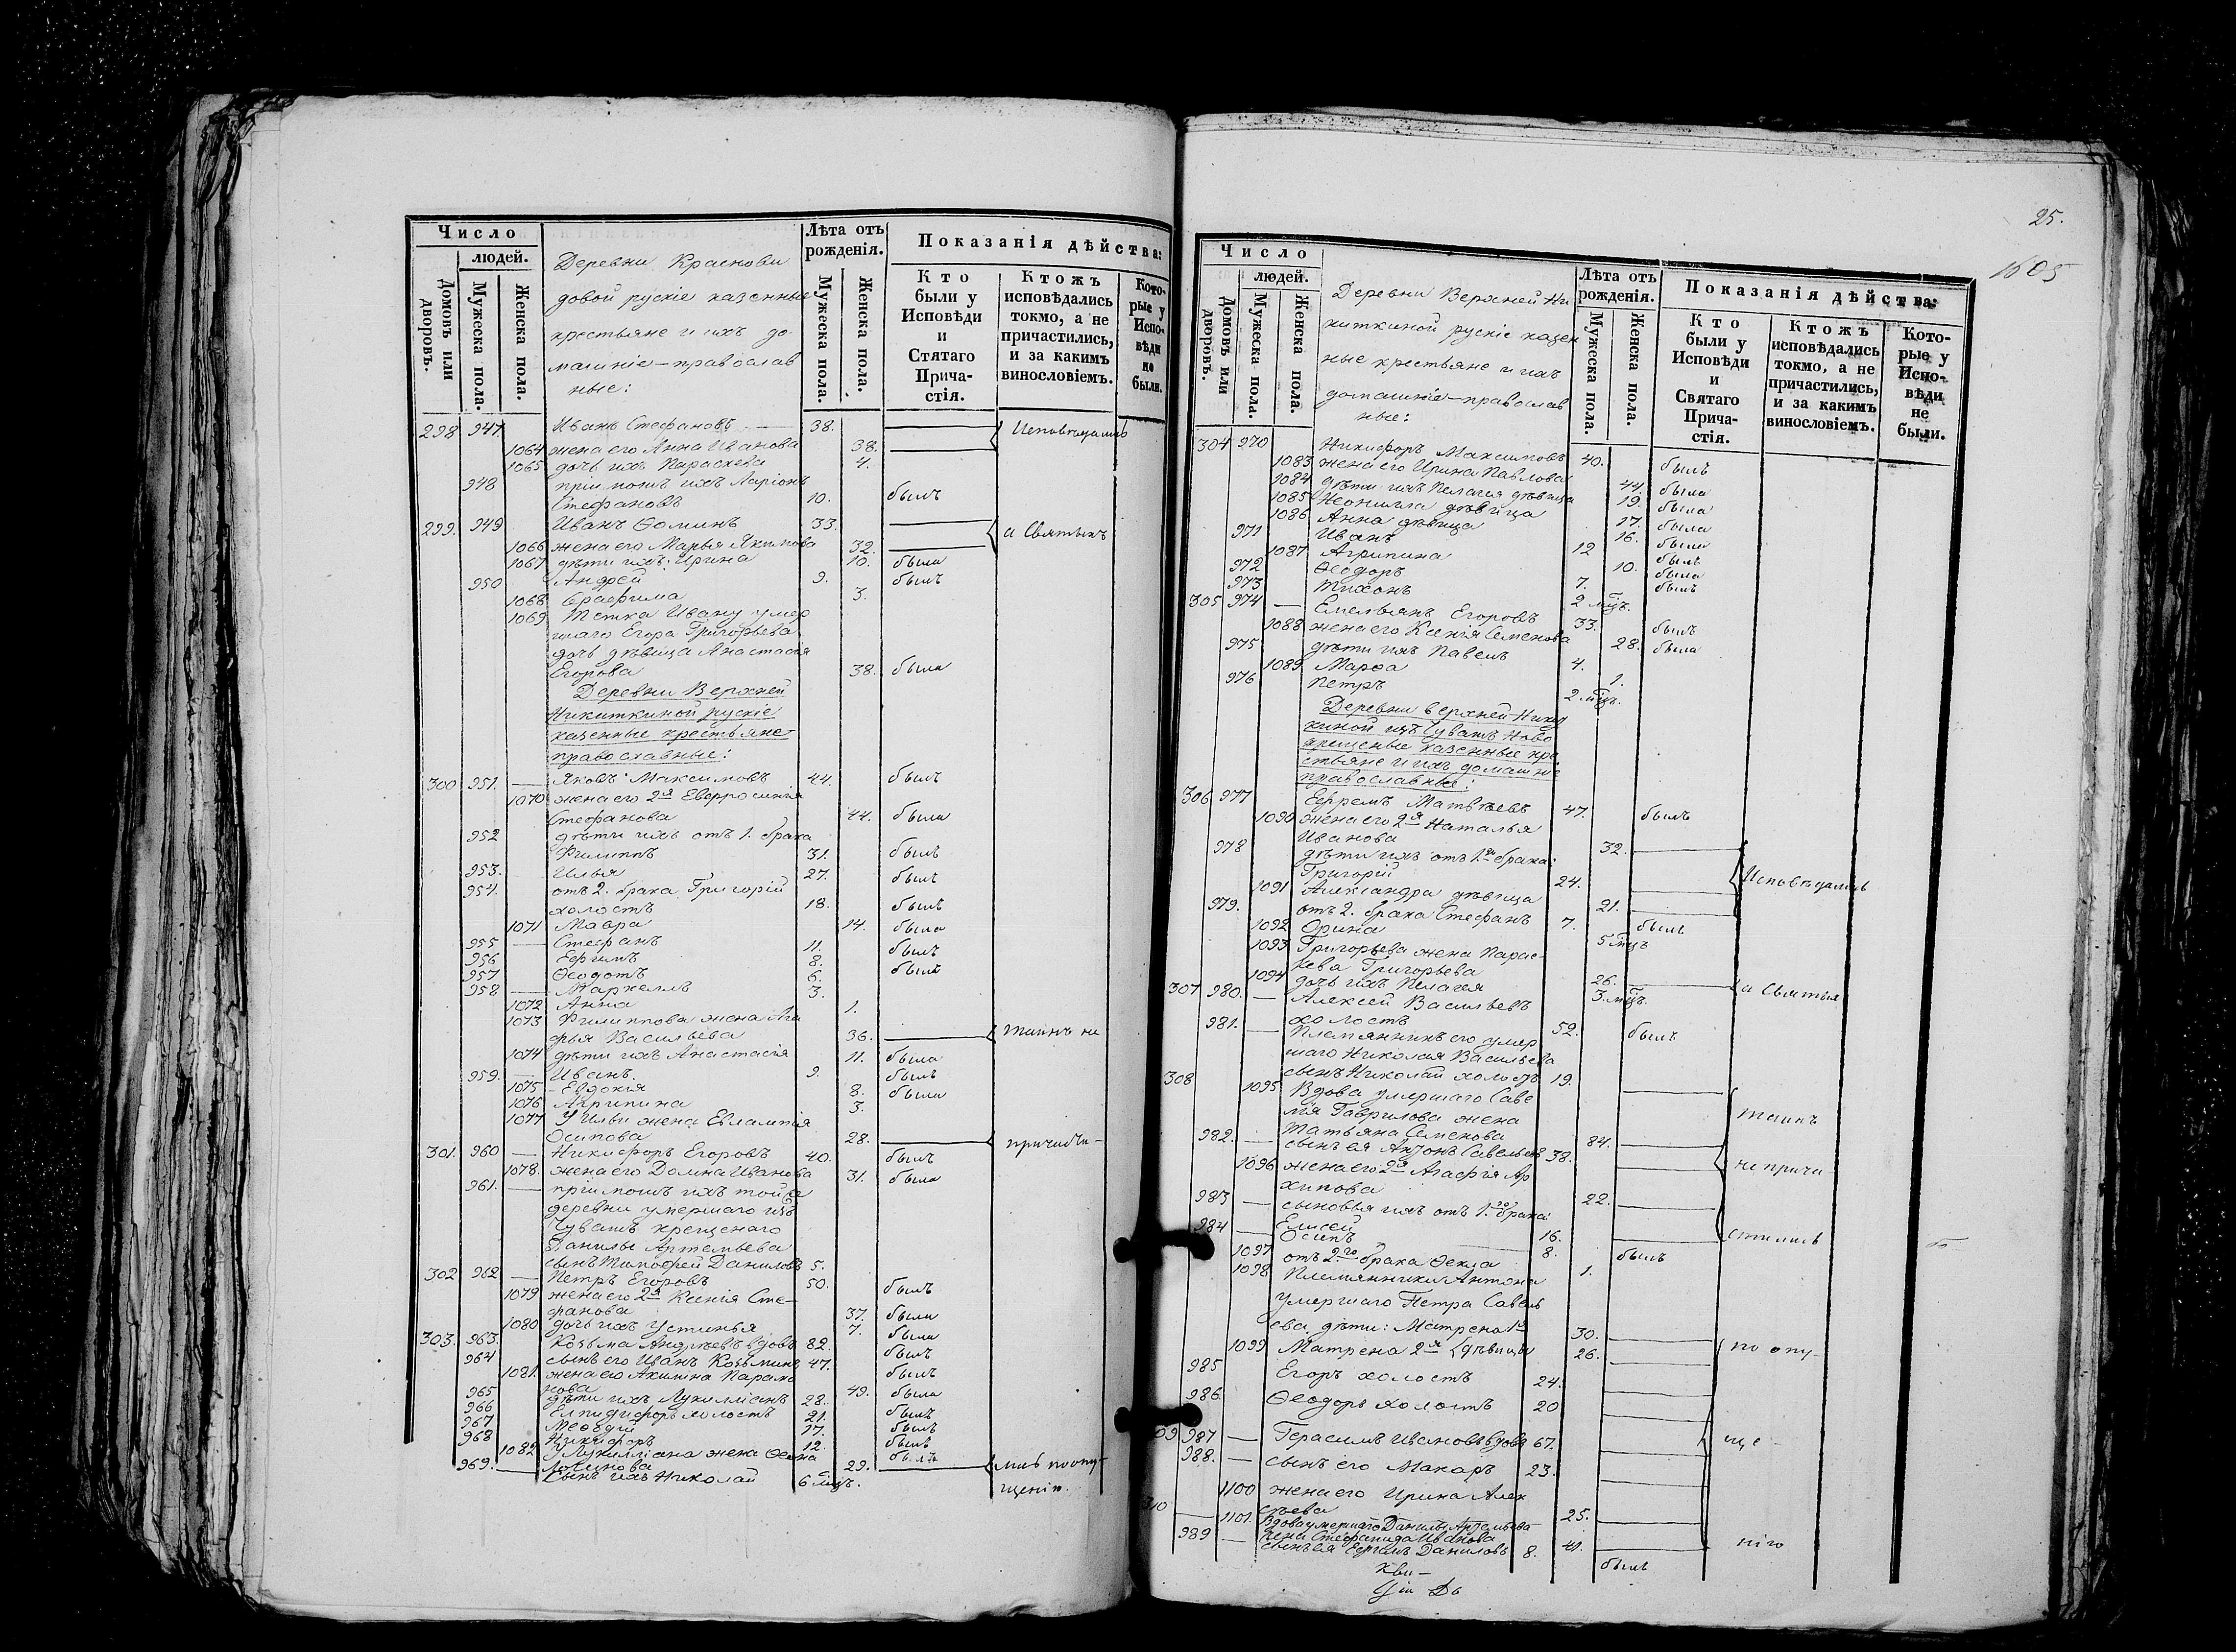 Число
людей.
Домовъ или дворовъ.
Мужеска пола.
Женска пола.
Деревни Красновидовой рускіе казенные
крестьяне и ихъ домашніе — православ
ные:
Лѣта отъ рожденія.
Мужеска пола.
Женска пола.
Показанія дѣйства:
Кто были у Исповѣди и Стятаго Причастія.
Ктожъ исповѣдались токмо, а не причастились, и за какимъ винословіемъ.
Которые у Исповѣди не были.
298 947. Иванъ Стефановъ — 38. — Исповѣдались
1064 жена его Анна Иванова 38. —
1065 дочь ихъ Параскева 4.
948 пріимышъ ихъ Ларіонъ
Стефановъ 10. былъ
299. 949 Иванъ Ѳоминъ 33. — а Святыхъ
1066 жена его Марья Якимова 32. —
1067 дѣти ихъ: Ирина 10. была
950 Андрей 9. былъ
1068 Серафима 3.
1069 Тетка Ивану умер
шаго Егора Григорьева
дочь дѣвица Анастасія
Егорова 38. была
Деревни Верхней
Никиткиной рускіе
казенные крестьяне
православные:
300 951. — Яковъ Максимовъ 44. былъ
1070 жена его 2я Евфросинія
Стефанова 44. была
952 дѣти ихъ отъ 1. брака
Филиппъ 31. былъ
953. Илья 27. былъ
954. отъ 2. брака Григорій
холостъ 18. былъ
1071 Мавра 14. была
955 — Стефанъ 11. былъ
956 Ефимъ 8. былъ
957 Ѳеодотъ 6.
958 — Маркеллъ 3.
1072 Анна 1.
1073 Филиппова жена Ма
рья Васильева 36. — таинъ не
1074 дѣти ихъ Анастасія 11. была
959. — Иванъ. 9. былъ
1075 — Евдокія 8. была
1076 Агрипина 3.
1077 У Ильи жена Евлампія
Осипова 28. — причасти-
301. 960 — Никифоръ Егоровъ 40. былъ
1078. жена его Домна Иванова 31. была
961. — пріимышъ ихъ той же
деревни умершаго изъ
Чувашъ крещенаго
Данилы Артемьева
сынъ Тимофей Даниловъ 5.
302 962 — Петръ Егоровъ 50. былъ
1079 жена его 2я Ксенія Сте-
фанова 37. была
1080 дочь ихъ Устинья 7. была
303. 963. Козьма Андреевъ вдовъ 82. былъ
964 сынъ его Иванъ Козьминъ 47. былъ
1081. жена его Акилина Парамо
нова 49. была
965 дѣти ихъ Лукилліанъ 28. былъ
966 Елпидифоръ холостъ 21. былъ
967 Меѳодій 17. былъ
968 Никифоръ 12. былъ
1082 У Лукилліана жена Ѳеона
Логинова 29. — лись по опу-
969. — сынъ ихъ Николай 6 мцъ. щенію.
25.
1605
Число
людей.
Домовъ или дворовъ.
Мужеска пола.
Женска пола.
Деревни Верхней Ни
киткиной рускіе казен
ные крестьяне и ихъ
домашніе — православ
ные:
Лѣта отъ рожденія.
Мужеска пола.
Женска пола.
Показанія дѣйства:
Кто были у Исповѣди и Святаго Причастія.
Ктожъ исповѣдались токмо, а не причастились, и за какимъ винословіемъ.
Которые у Исповѣди не были.
304 970 Никифоръ Максимовъ 40. былъ
1083 жена его Ирина Павлова 44. была
1084 дѣти ихъ Пелагея дѣвица 19. была
1085 Неонила дѣвица 17. была
1086 Анна дѣвица 16. была
971 Иванъ 12 былъ
1087 Агрипина 10. была
972 Ѳеодоръ 7. былъ
973 Тихонъ 2 мцъ.
305 974 — Емельянъ Егоровъ 33. былъ
1088 жена его Ксенія Семенова 28. была
975 дѣти ихъ Павелъ 4.
1089 Марѳа 1.
976 Петръ 2. мцъ.
Деревни верхней Никит
киной изъ Чувашъ Ново
крещеные казенные кре
стьяне и ихъ домашніе
православные:
306 977 Ефремъ Матвѣевъ 47. былъ
1090 жена его 2я Наталья
Иванова 32. —
978 дѣти ихъ отъ 1го брака:
Григорій 24. — Исповѣдались
1091 Александра дѣвица 21. —
979. отъ 2. брака Стефанъ 7. былъ
1092 Орина 5 мцъ
1093 Григорьева жена Парас-
кева Григорьева 26. — а Святыя
1094 дочь ихъ Пелагея 3. мцъ.
307 980. — Алексей Васильевъ
холостъ 52. былъ
981. — Племянникъ его умер
шаго Николая Васильева
сынъ Николай холостъ 19. —
308 1095 Вдова умершаго Саве
лія Гаврилова жена таинъ
Татьяна Семенова 84. —
982. — сынъ ея Антонъ Савельевъ 38. —
1096 жена его 2я Агафія Ар не прича-
хипова 22. —
983 — сыновья ихъ отъ 1.го брака:
Елисей 16. — стились
984 — Осипъ 8. былъ
1097 отъ 2.го брака Ѳекла 1.
1098 Племянники Антона
умершаго Петра Савель
ева дѣти: Матрена 1я 30. — по опу-
1099 Матрена 2я дѣвицы 26. —
985 Егоръ холостъ 24. —
986. Ѳеодоръ холостъ 20 —
09 987 — Герасимъ Ивановъ вдовъ 67. — ще-
988. — сынъ его Макаръ 23. —
1100 жена его Ирина Алек
сѣева 25. —
310 — 1101. Вдова умершаго Данилы Артемьева
жена Стефанида Иванова 41. — нію
989 — сынъ ея Ефимъ Даниловъ 8. былъ